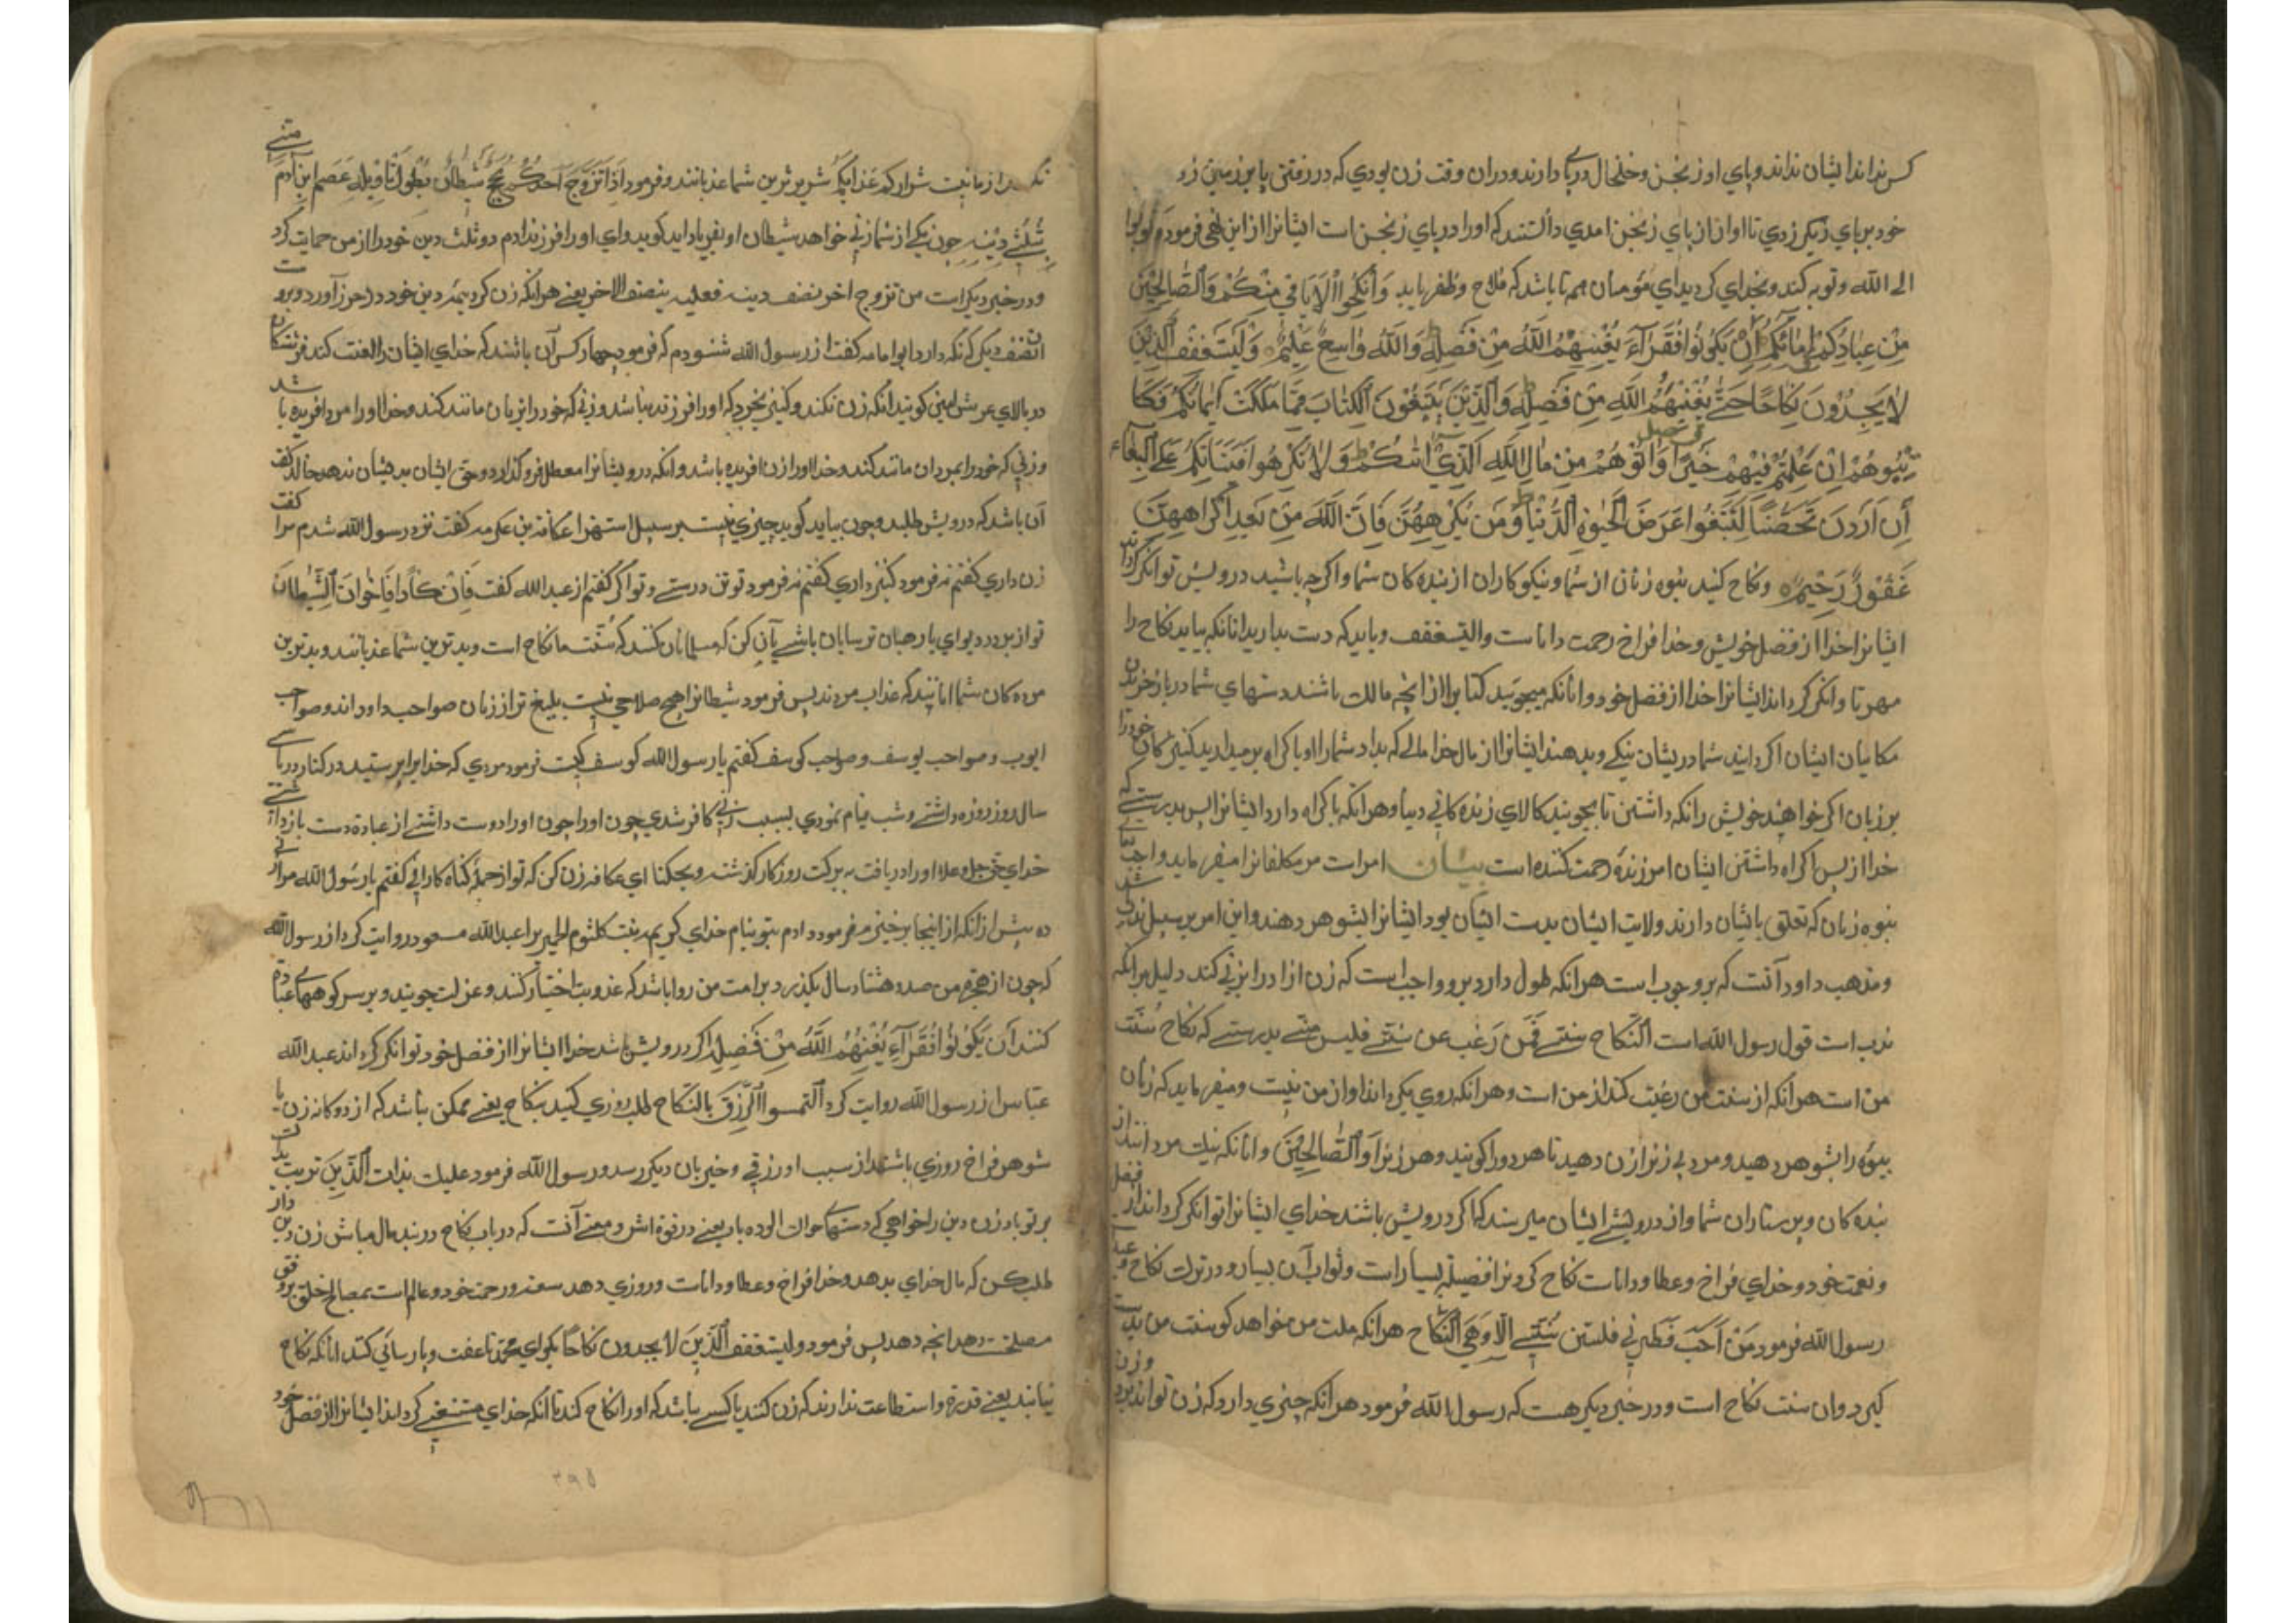 کس نداند ایشان نداند و پای اورنجن و خلخال در پای دارند و دران وقت زن بودی که در رفتن پا بر زمین زد
خود بر پای دیگر زدی تا اواز از پای رنجن امدی دانستند که او را در پای رنجن است ایشانرا از این نهی فرمود و توبوا
الی الله و توبه کنید و بخدای کردید ای مؤمنان همه تا باشد که فلاح و ظفر یابید وَاَنْکِحُوا الْاَیَامٰی مِنْکُمْ وَالصَّالِحِیْنَ
مِنْ عِبَادِکُمْ وَاِمَائِکُمْ اِنْ یَکُوْنُوْا فُقَرَآءَ یُغْنِهِمُ اللّٰهُ مِنْ فَضْلِهٖ وَاللّٰهُ وَاسِعٌ عَلِیْمٌ وَلْیَسْتَعْفِفِ الَّذِیْنَ
لَا یَجِدُوْنَ نِکَاحًا حَتّٰی یُغْنِیَهُمُ اللّٰهُ مِنْ فَضْلِهٖ وَالَّذِیْنَ یَبْتَغُوْنَ الْکِتَابَ مِمَّا مَلَکَتْ اَیْمَانُکُمْ فَکَا
تِبُوْهُمْ اِنْ عَلِمْتُمْ فِیْهِمْ خَیْرًا وَاٰتُوْهُمْ مِنْ مَالِ اللّٰهِ الَّذِیْ اٰتٰکُمْ وَلَا تُکْرِهُوْا فَتَیَاتِکُمْ عَلَی الْبِغَاءِ
اِنْ اَرَدْنَ تَحَصُّنًا لِتَبْتَغُوْا عَرَضَ الْحَیٰوةِ الدُّنْیَا وَمَنْ یُکْرِهْهُنَّ فَاِنَّ اللّٰهَ مِنْ بَعْدِ اِکْرَاهِهِنَّ
غَفُوْرٌ رَحِیْمٌ و نکاح کنید بیوه زنان از شما و نیکوکاران از بنده کان شما و اکرچه باشید درویش توانکر کرداند
ایشانرا خدا از فضل خویش و خدا فراخ رحمت داناست والیستعفف و باید که دست بدارید انانکه نیابید نکاح را
مهر تا توانکر کرداند ایشانرا خدا از فضل خود و انانکه میجویید کتابرا از انچه مالک باشند دستهای شما در باز خریدن
مکاتبان ایشان اکر دانید شما در یشان نیکی و بدهند ایشانرا از مال خدا مالی که بداد شما را و باکراه بر میدارید کنیزکان خود را
بر زنان اکر خواهند خویش را نکه داشتن تا بجویید کالای زنده کانی دنیا و هر انکه باکراه دارد ایشانرا پس بدرستی که
خدا از پس اکراه داشتن ایشان امرزنده رحمت کننده است بیان امر است مر مکلفانرا میفرماید و اجب
بیوه زنان که تعلق بایشان دارند ولایت ایشان بدست ایشان بود ایشانرا بشوهر دهند و این امر بر سبیل ندب
و مذهب داود آنست که بر وجوب است هر انکه طول دارد برو واجب است که زن ازاد را بزنی کند دلیل بر انکه
ندب است قول رسول الله است اَلنِّکَاحُ سنتی فَمَنْ رَغِبَ عن سُنَّتی فلیس منّی بدرستی که نکاح سُنَّت
من است هر انکه از سنت من رغبت کند از من است و هر انکه روی بکرداند او از من نیست و میفرماید که زنان
بیوه را بشوهر دهید و مرد بی زنرا زن دهید تا هر دو را کویند و هر زنرا وَالصَّالِحِیْنَ و انانکه نیک مردانند از
بنده کان و پرستاران شما و از درویشی ایشان میرسند که اکر درویش باشند خدای ایشانرا توانکر کرداند از فضل
و نعمت خود و خدای فراخ و عطا و داناست نکاح کردنرا فضیلت بسیار است و ثواب آن بسیار و در ترک نکاح وعید
رسول الله فرمود مَنْ اَحَبَّ فطرتی فلیستن سُنَّتی اَلا وهی النِّکَاح هر انکه ملت من خواهد کو سنت من بدست
کیرد و ان سنت نکاح است و در خبر دیکر هست که رسول الله فرمود هر انکه چیزی دارد که زن تواند بود و زن
نکند از ما نیست شرارکم عزابکم شریرترین شما عذبانند و فرمود اِذَا تَزَوَّجَ اَحَدُکُمْ عَجَّ شیطانُه یقول یا ویله عَصَمَ ابن آدم منی
ثلثی دینه چون یکی از شما زنی خواهد شیطان او بفریاد اید کوید وای او را فرزند ادم دو ثلث دین خود را از من حمایت کرد
و در خبر دیکر است من تزوج احرز نصف دینه فعلیه بنصف الاخر یعنی هر انکه زن کرد نیمهٔ دین خود در احرز آورد و برو
ان نصف دیکر نکه دارد ابو امامه کفت از رسول الله شنودم که فرمود چهار کس آن باشند که خدای ایشان را لعنت کند فرشتکان
در بالای عرش امین کویند انکه زن نکند و کنیز نخرد که او را فرزند نباشد و زنی که خود را بزنان مانند کند و خدا او را مرد افریده باشد
و زنی که خود را بمردان مانند کند و خدا او را زن افریده باشد و انکه درویشانرا معطل فرو کذارد و حق ایشان بدیشان ندهد خالد کفت
آن باشد که درویش طلبد و چون بیاید کوید چیزی نیست بر سبیل استهزا عکافة بن عکرمه کفت نزد رسول الله شدم مرا کفت
زن داری کفتم نه فرمود کنیز داری کفتم نه فرمود تو تن درستی و توانکر کفتم از عبد الله کفت فَاِنْ کَاْدا فَاِخْوَانَ الشَّیْطَانَ
تو از برادر دیوای یا رهبان ترسایان باشی یا آن کن که مسلمانان کنند که سُنّت ما نکاح است و بدترین شما عذبانند و بدترین
مرده کان شما انانیند که عذاب مردند پس فرمود شیطانرا هیچ صلاحی نیست بلیغ تر از زنان صواحب داود اند و صواحب
ایوب و صواحب یوسف و صواحب کرسف کفتم یا رسول الله کرسف کیست فرمود مردی که خدایرا پرستید در کنار دریا سی
سال روز روزه داشتی و شب قیام نمودی بسبب زنی کافر شدی چون او را چون او را دوست داشتی از عبادة دست باز داشتی
خدای حق جل و علا او را دریافت به برکت روزکار کذشته و بحکنا ای عکافه زن کن که تو از جملهٔ کناه کارانی کفتم یا رسول الله مرا زنی
ده پیش از انکه از اینجا برخیزم فرمود دادم بتو بنام خدای کریمه بنت کلثوم الحمیری را عبد الله مسعود روایت کرد از رسول الله
که چون از هجرة من صد و هشتاد سال بکذرد بر امت من روا باشد که عذوبت اختیار کنند و عزلت جویند و بر سر کوهها عبادة
کنند اَنْ یَکُوْنُوْا فُقَرَآءَ یُغْنِهِمُ اللّٰهُ مِنْ فَضْلِهٖ اکر درویش باشد خدا ایشانرا از فضل خود توانکر کرداند عبد الله
عباس از رسول الله روایت کرد اَلتمسوا الرِّزْقَ بالنکاح طلب روزی کنید بنکاح یعنی ممکن باشد که از دوکانه زن یا
شوهر فراخ روزی باشد از سبب او رزقی و خیر بان دیکر رسد و رسول الله فرمود علیک بذات الَّذِیْنَ تربت یداک
بر تو باد زن دین را خواهی که دستهات خاک الوده باد یعنی در فوة اش و معنی آنست که در باب نکاح در بند مال مباش زن دین دار
طلب کن که مال خدای بدهد و خدا فراخ و عطا و داناست و روزی دهد سعت و رحمت خود و عالم است بمصالح خلق بر وفق
مصلحت دهد انچه دهد پس فرمود ولیستعفف الَّذِیْنَ لا یجدون نکاحًا بکوای محمد تا عفت و پارسائی کنند انانکه نکاح
نیابند یعنی قدرة و استطاعت ندارند که زن کنند یا کسی نباشد که او را نکاح کند تا انکه خدای مستغنی کرداند ایشانرا از فضل خود
۳۹۵